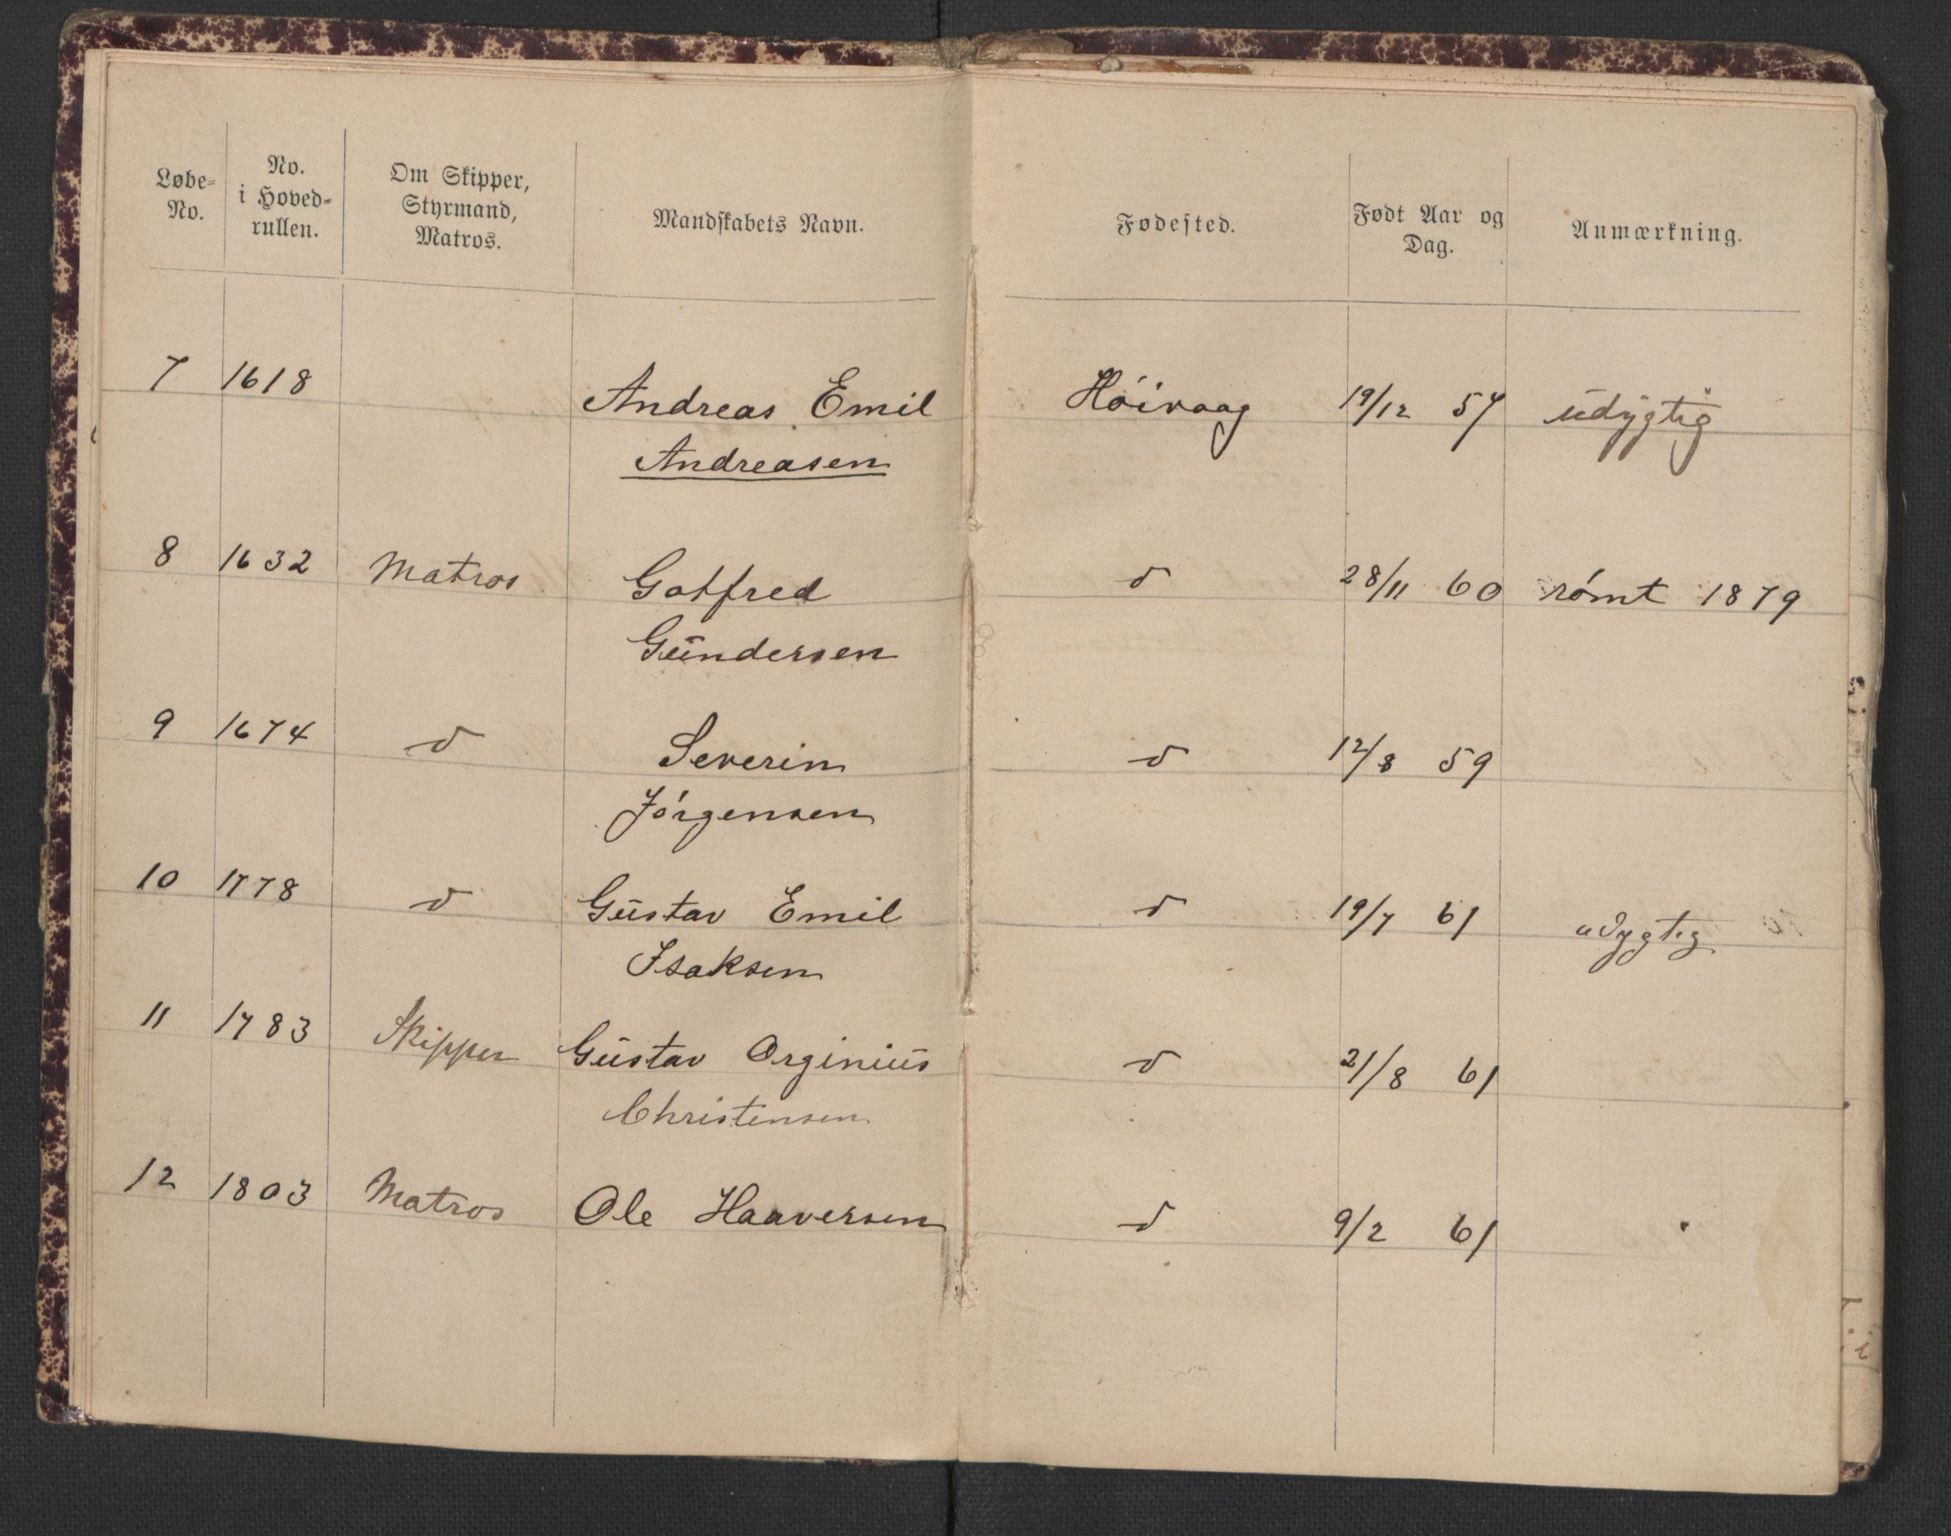 Løbe-
No.
No.
i Hoved-
rullen.
Om Skipper,
Styrmand,
Matros.
Mandskabets Navn.
Fødested.
Født Aar og
Dag.
Anmærkning.
7 1618 Andreas Emil Høivaag 19/12 57 udygtig
Andreasen
8 1632 Matros Gotfred d 28/11 60 rømt 1879
Gundersen
9 1674 d Severin d 12/8 59
Jørgensen
10 1778 d Gustav Emil d 19/7 61 udygtig
Isaksen
11 1783 Skipper Gustav Orginius d 21/8 61
Christensen
12 1803 Matros Ole Haaversen d 9/2 61